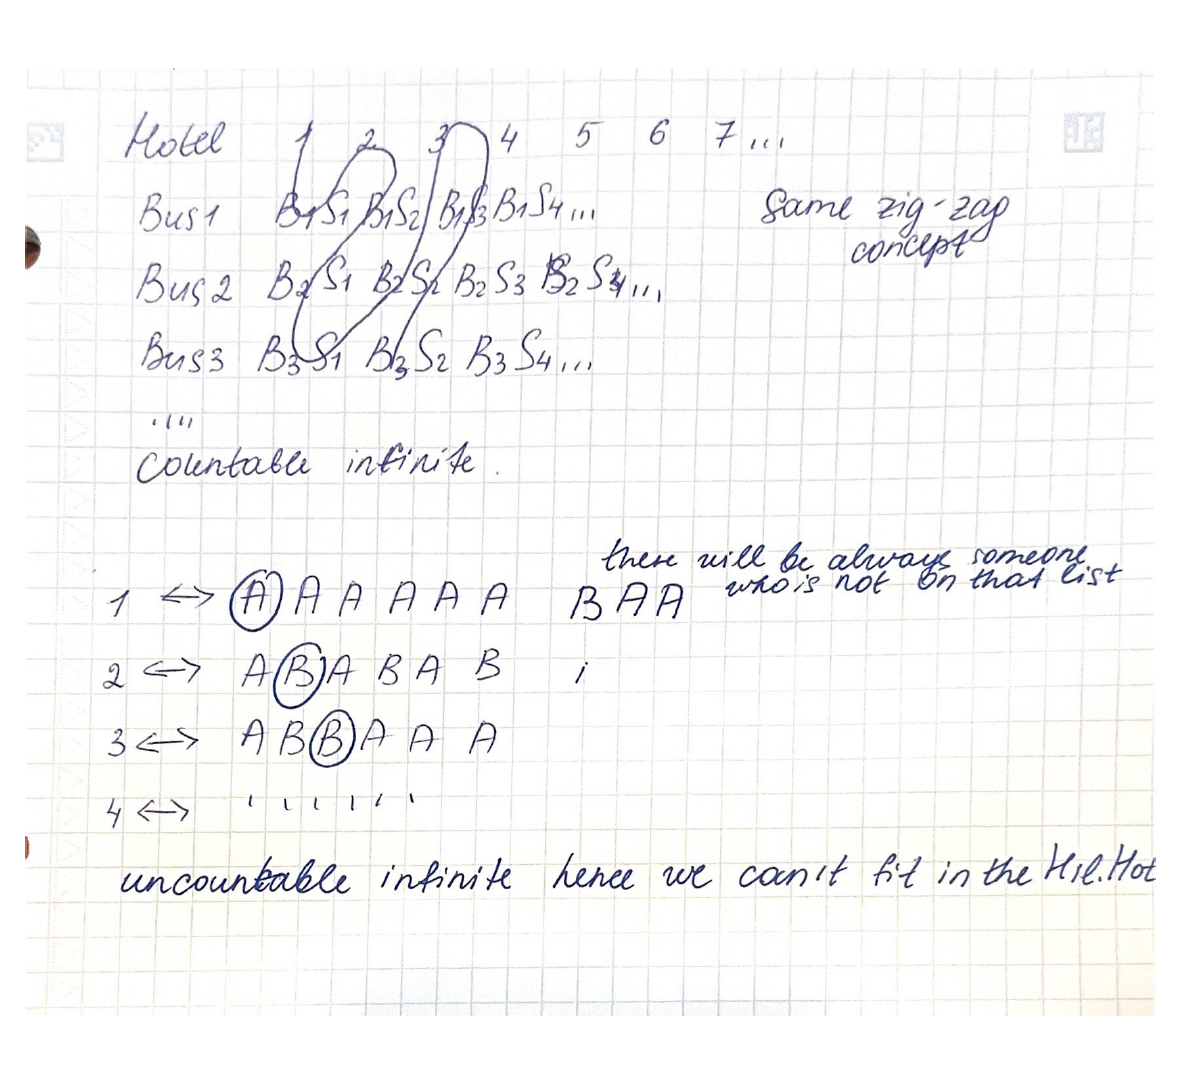 Hotel 1 2 3 4 5 6 7 ...
Bus1 B1S1 B1S2 B1S3 B1S4...
Bus2 B2S1 B2S2 B2S3 B2S4...
Bus3 B3S1 B3S2 B3S4...
....
Same zig-zag
concept
Countable infinite.
there will be always someone
who is not on that list
1 <-> A A A A A A B A A
2 <-> A B A B A B
3 <-> A B B A A A
4 <-> ' ' ' ' ' '
uncountable infinite hence we can't fit in the Hil.Hot